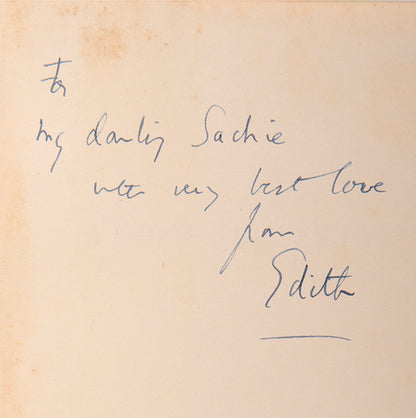 For
my darling Sachie
with very best love
from
Edith